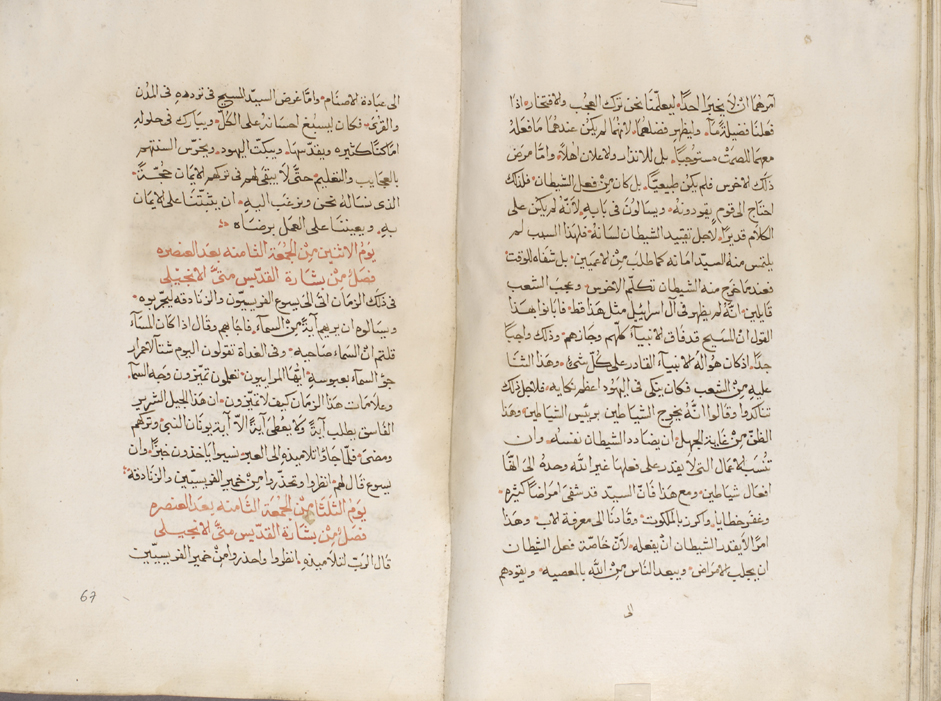 امرهما ان لا يخبرا احدا* ليعلمنا نحن ترك العجب والافتخار* اذا
فعلنا فضيلة ما* وليظهر فضلهما* لانهما لم يكن عندهما ما فعله
معهما للصمت مستوجبا* بل للانذار والاعلان اهلا* واما مرض
ذلك الاخرس فلم يكن طبيعيا* بل كان من فعل الشيطان* فلذلك
احتاج الى قوم يقودونه* ويسالون في بابه* لانه لم يكن على
الكلام قديرا* لاجل تقييد الشيطان لسانه* فلهذا السبب لم
يلتمس منه السيد امانه كما طلب من الاعميين* بل شفاه للوقت*
فعندما خرج منه الشيطان تكلم الاخرس* وعجب الشعب
قايلين* انه لم يظهر في ال اسرائيل مثل هذا قط* فابانوا بهذا
القول ان المسيح قد فاق الانبياء كلهم وجازهم* وذلك واجبا
جدا* اذ كان هو اله الانبياء القادر على كل شيء* وهذا الثنا
عليه من الشعب فكان ينكى في اليهود اعظم نكايه* فلاجل ذلك
تناكدوا وقالوا انه يخرج الشياطين برييس الشياطين* وهذا
الظن من غاية الجهل* ان يضادد الشيطان نفسه* وان
تنسب الاعمال التي لا يقدر على فعلها غير الله وحده الى انها
افعال شياطين* ومع هذا فان السيد قد شفى امراضا كثيره*
وغفر خطايا* واكرز بالملكوت* وقادنا الى معرفة الاب* وهذا
امرا لا يقدر الشيطان ان يفعله* لان خاصة فعل الشيطان
ان يجلب الامراض* ويبعد الناس من الله بالمعصيه* ويقودهم
الى
الى عبادة الاصنام* واما غرض السيد المسيح في تودهه في المدن
والقرى* فكان ليسبغ احسانه على الكل* ويبارك في حلوله
اماكنا كثيره ويقدسها* ويبكت اليهود* ويخرس السنتهم
بالعجايب والتعليم* حتى لا يبقى لهم في تركهم الايمان حجة*
الذي نساله نحن ونرغب اليه* ان يثبتنا على الايمان
به* ويعيننا على العمل برضاه
يوم الاثنين من الجمعة الثامنه بعد العنصره
فصل من بشارة القديس متى الانجيلي
في ذلك الزمان اقبل الى يسوع الفريسيون والزنادقه ليجربوه*
وسالوه ان يريهم آية من السماء* فاجابهم وقال اذا كان المساء
قلتم ان السماء صاحيه* وفي الغداة تقولون اليوم شتا لاحمرار
جو السماء بعبوسة* ايها المرايون* تعلمون تميزون وجه السما*
وعلامات هذا الزمان كيف لا تميزون* ان هذا الجيل الشرير
الفاسق يطلب آية* ولا يعطى آية الا آية يونان النبي* وتركهم
ومضى* فلما جاوا تلاميذه الى العبر نسيوا ياخذون خبزا* وان
يسوع قال لهم* انظروا وتحذروا من خمير الفريسيين والزنادقة
يوم الثلثا من الجمعة الثامنه بعد العنصره
فصل من بشارة القديس متى الانجيلي
قال الرب لتلاميذه* انظروا واحذروا من خمير الفريسيين
67